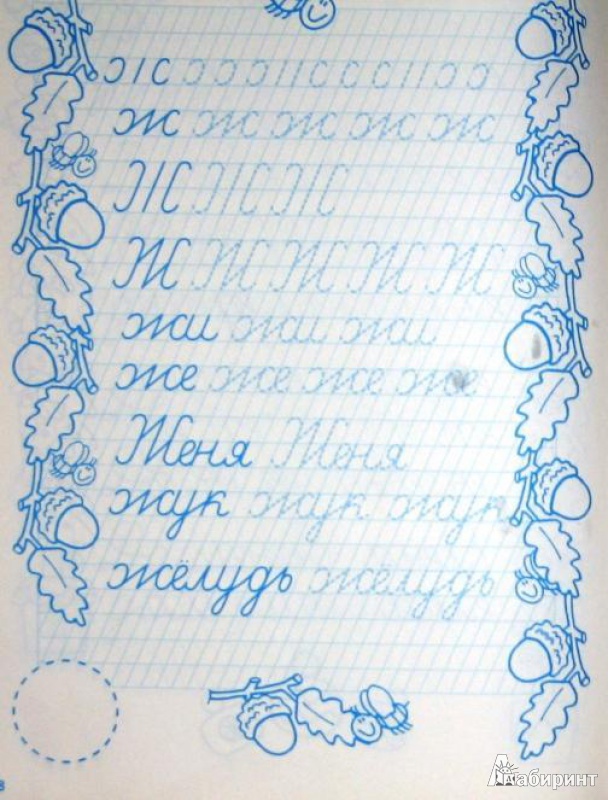 ж ж ж ж ж
Ж Ж Ж
Ж Ж Ж Ж Ж
жи жи жи
же же же же
Женя Женя
жук жук жук
жёлудь жёлудь
8
Лабиринт